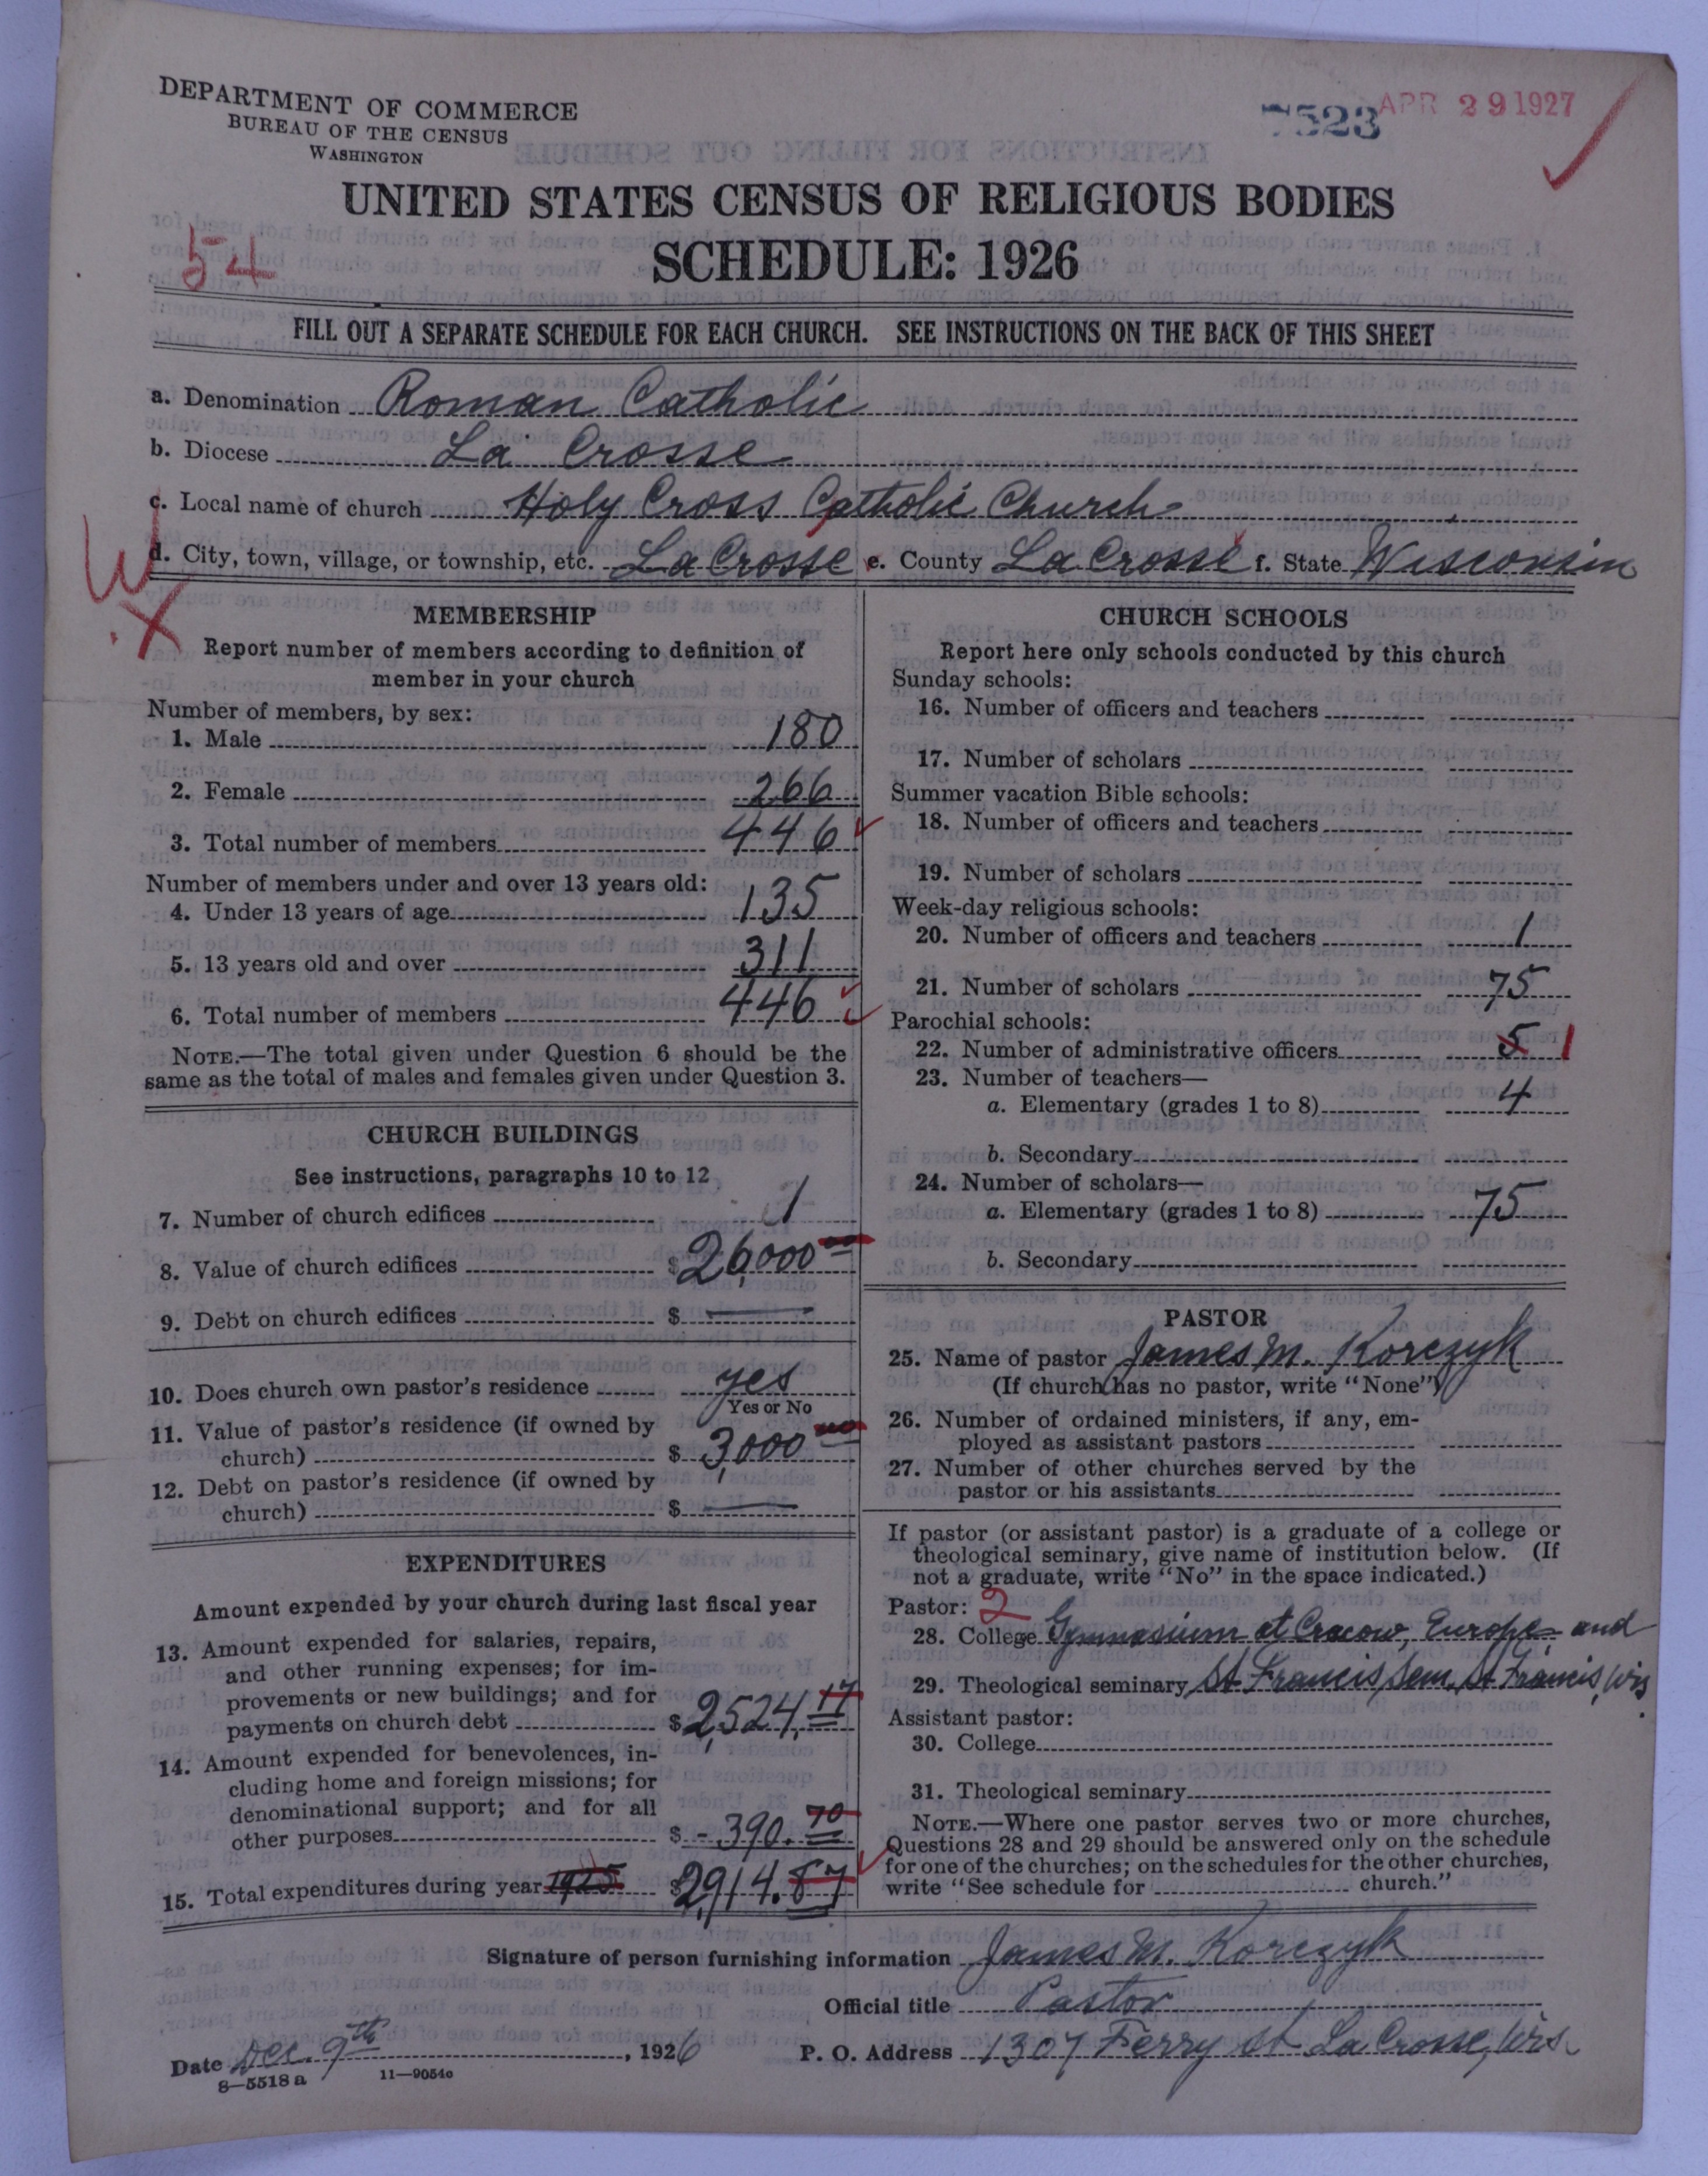 DEPARTMENT OF COMMERCE
BUREAU OF THE CENSUS
WASHINGTON
7523
APR 29 1927
UNITED STATES CENSUS OF RELIGIOUS BODIES
SCHEDULE: 1926
54
FILL OUT A SEPARATE SCHEDULE FOR EACH CHURCH. SEE INSTRUCTIONS ON THE BACK OF THIS SHEET
a. Denomination Roman Catholic
b. Diocese La Crosse
c. Local name of church Holy Cross Catholic Church
d. City, town, village, or township, etc. La Crosse e. County La Crosse f. State Wisconsin
W
X
MEMBERSHIP
Report number of members according to definition of
member in your church
Number of members, by sex:
1. Male 180
2. Female 266
3. Total number of members 446
Number of members under and over 13 years old:
4. Under 13 years of age 135
5. 13 years old and over 311
6. Total number of members 446
NOTE.—The total given under Question 6 should be the
same as the total of males and females given under Question 3.
CHURCH BUILDINGS
See instructions, paragraphs 10 to 12
7. Number of church edifices 1
8. Value of church edifices $26,000 00
9. Debt on church edifices $ —
10. Does church own pastor's residence yes
Yes or No
11. Value of pastor's residence (if owned by
church) $ 3,000 00
12. Debt on pastor's residence (if owned by
church) $ —
EXPENDITURES
Amount expended by your church during last fiscal year
13. Amount expended for salaries, repairs,
and other running expenses; for im-
provements or new buildings; and for
payments on church debt $2,524.17
14. Amount expended for benevolences, in-
cluding home and foreign missions; for
denominational support; and for all
other purposes $ - 390.70
15. Total expenditures during year 1925 $2,914.87
CHURCH SCHOOLS
Report here only schools conducted by this church
Sunday schools:
16. Number of officers and teachers
17. Number of scholars
Summer vacation Bible schools:
18. Number of officers and teachers
19. Number of scholars
Week-day religious schools:
20. Number of officers and teachers 1
21. Number of scholars 75
Parochial schools:
22. Number of administrative officers 5 1
23. Number of teachers—
a. Elementary (grades 1 to 8) 4
b. Secondary
24. Number of scholars—
a. Elementary (grades 1 to 8) 75
b. Secondary
PASTOR
25. Name of pastor James M. Korczyk
(If church has no pastor, write "None")
26. Number of ordained ministers, if any, em-
ployed as assistant pastors
27. Number of other churches served by the
pastor or his assistants
If pastor (or assistant pastor) is a graduate of a college or
theological seminary, give name of institution below. (If
not a graduate, write "No" in the space indicated.)
Pastor: 2
28. College Gymnasium at Cracow, Europe, and
29. Theological seminary St Francis Sem. St Francis, Wis.
Assistant pastor:
30. College
31. Theological seminary
NOTE.—Where one pastor serves two or more churches,
Questions 28 and 29 should be answered only on the schedule
for one of the churches; on the schedules for the other churches,
write "See schedule for church."
Signature of person furnishing information James M. Korczyk
Official title Pastor
Date Dec. 9th, 1926 P. O. Address 1307 Ferry St La Crosse, Wis.
8—5518 a 11—9054o